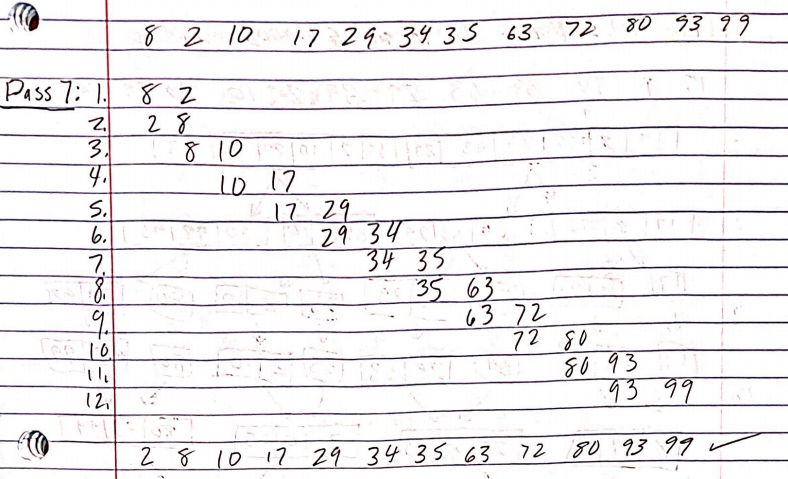 8 2 10 17 29 34 35 63 72 80 93 99
Pass 7: 1. 8 2
2. 2 8
3. 8 10
4. 10 17
5. 17 29
6. 29 34
7. 34 35
8. 35 63
9. 63 72
10. 72 80
11. 80 93
12. 93 99
2 8 10 17 29 34 35 63 72 80 93 99 ✓